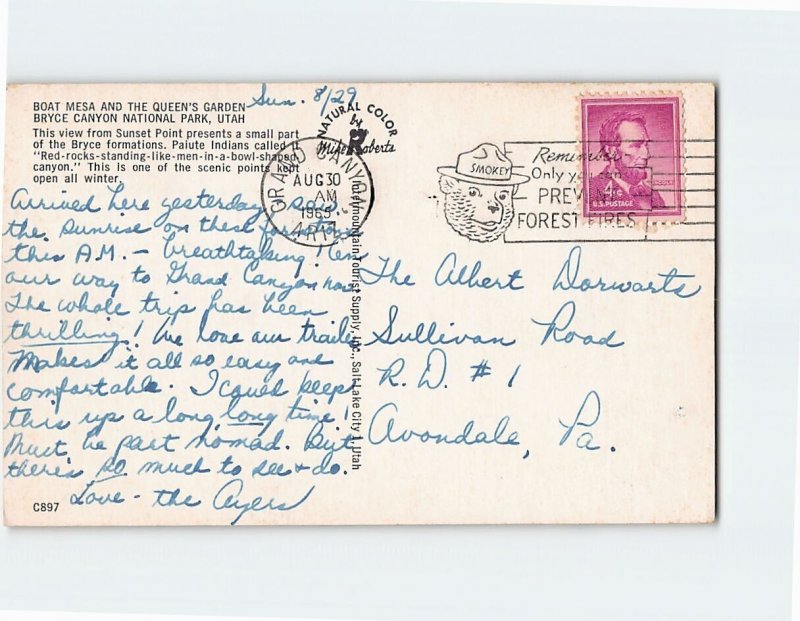 BOAT MESA AND THE QUEEN'S GARDEN
BRYCE CANYON NATIONAL PARK, UTAH
This view from Sunset Point presents a small part
of the Bryce formations. Paiute Indians called it
"Red-rocks-standing-like-men-in-a-bowl-shaped
canyon." This is one of the scenic points kept
open all winter.
Sun. 8/29
Arrived here yesterday, saw
the sunrise on these formations
this A.M. - breathtaking! On
our way to Grand Canyon now.
The whole trip has been
thrilling! We love our trailer
Makes it all so easy and
comfortable. I could keep
this up a long, long time!
Must be part nomad. But
there's so much to see & do.
Love - the Ayers
C897
NATURAL COLOR
by
R
Mike Roberts
Intermountain Tourist Supply, Inc., Salt Lake City 1, Utah
GRAND CANYON
AUG 30
AM
1965
ARIZ.
SMOKEY
Remember
Only you can
PREVENT
FOREST FIRES
4¢
LINCOLN
U.S. POSTAGE
The Albert Dorwarts
Sullivan Road
R.D. #1
Avondale, Pa.